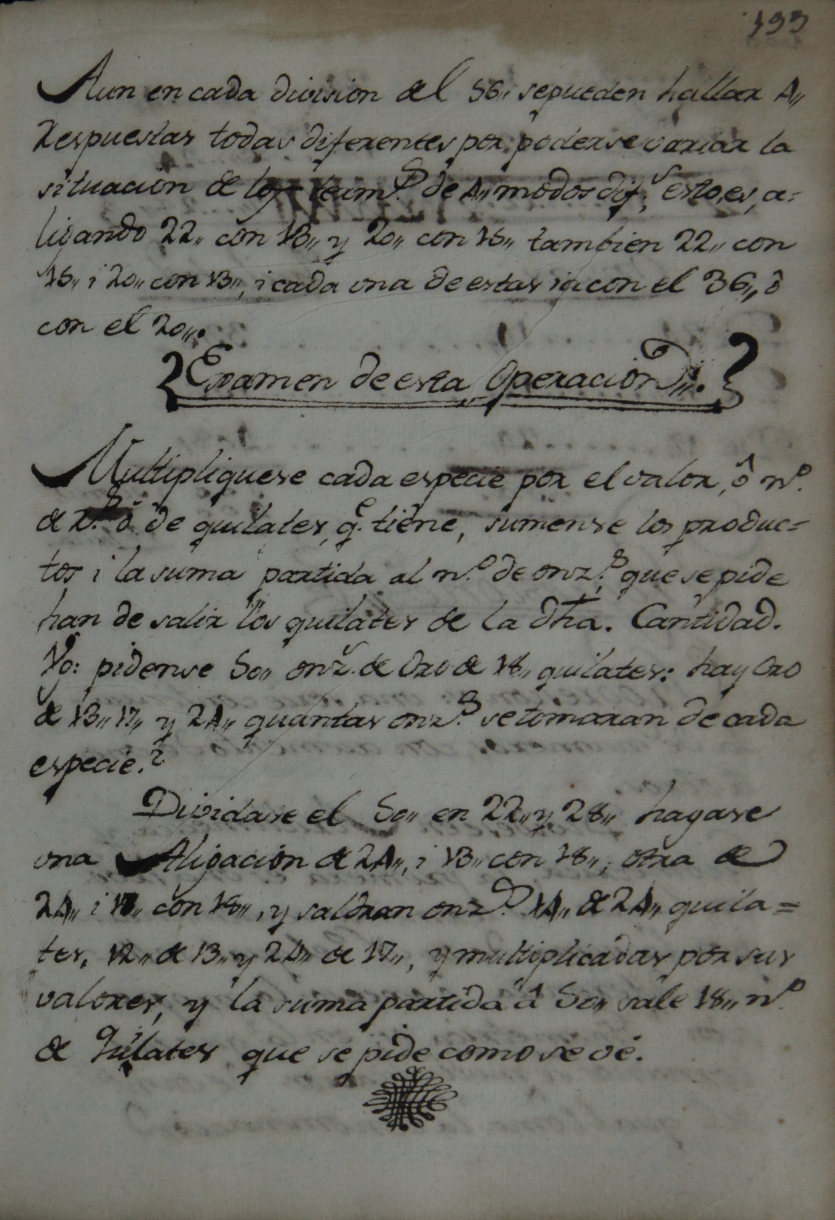 133
Aun en cada division del 56,, se pueden hallar 4,,
Respuestas todas diferentes por poderse variar la
situacion de los term.s de 4,, modos dif.s, esto, es, a=
ligando 22,, con 13,, y 20,, con 15,, tambien 22,, con
15,, i 20,, con 13,, i cada una de estas ia con el 36,, ô
con el 20,,.
Examen de esta Operacion.
Multipliquese cada especie por el valor, ô n.º
de ô de quilates, q.e tiene, sumense los produc=
tos i la suma partida al n.º de onz.s que se pide
han de salir los quilates de la dha. Cantidad.
Vg: pidense 50,, onz.s de Oro de 18,, quilates: hay Oro
de 13,, 17,, y 24,, quantas onz.s se tomaran de cada
especie.?
Dividase el 50,, en 22,, y 28,, hagase
una Aligación de 24,, i 13,, con 18,, otra de
24,, i 17,, con 18,, , y saldran onz.s 14,, de 24,, quila=
tes, 12,, de 13,, y 24,, de 17,, , y multiplicadas por sus
valores, y la suma partida â 50,, sale 18,, n.º
de Quilates que se pide como se vé.